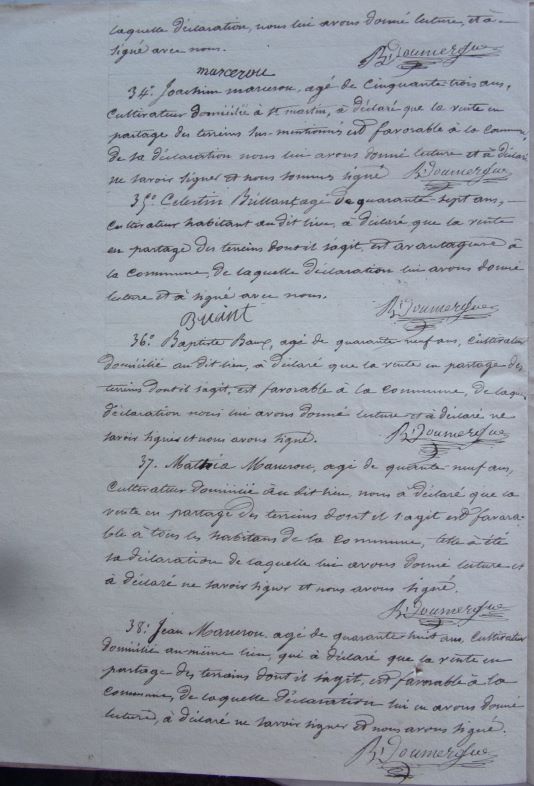 laquelle déclaration, nous lui avons donné lecture, et à
signé avec nous.
Bd Doumergue
marcerou
34º. Joachim marcerou, agé de Cinquante-trois ans,
Cultivateur domicilié à St martin, à déclaré que la vente en
partage des terreins sus-mentionnés est favorable à la Commune,
de sa déclaration nous lui avons donné lecture et à déclaré
ne savoir signer et nous sommes signé
Bd Doumergue
35º. Celestin Brillant agé de quarante-sept ans,
Cultivateur habitant audit lieu, à déclaré que la vente
en partage des terreins dont il sagit, est avantageuse à
la Commune, de laquelle déclaration lui avons donné
lecture et à signé avec nous.
Bd Doumergue
36º. Baptiste agé de quarante-neuf ans, Cultivateur
domicilié au dit lieu, à déclaré que la vente en partage des
terreins dont il sagit, est favorable à la Commune, de laqu.
déclaration nous lui avons donné lecture et à déclaré ne
savoir signer et nous avons signé.
Bd Doumergue
37. Mathia Marcerou, agé de quarante-neuf ans,
Cultivateur domicilié au dit lieu, nous à déclaré que la
vente en partage des terreins dont il s'agit est favora-
ble à tous les habitans de la Commune, telle à été
sa déclaration de laquelle lui avons donné lecture et
à déclaré ne savoir signer et nous avons signé.
Bd Doumergue
38º. Jean Marcerou, agé de quarante-huit ans, Cultivateur
domicilié au même lieu, qui à déclaré que la vente en
partage des terreins dont il sagit, est favorable à la
Commune, de laquelle déclaration lui en avons donné
lecture, à déclaré ne savoir signer et nous avons signé.
Bd Doumergue